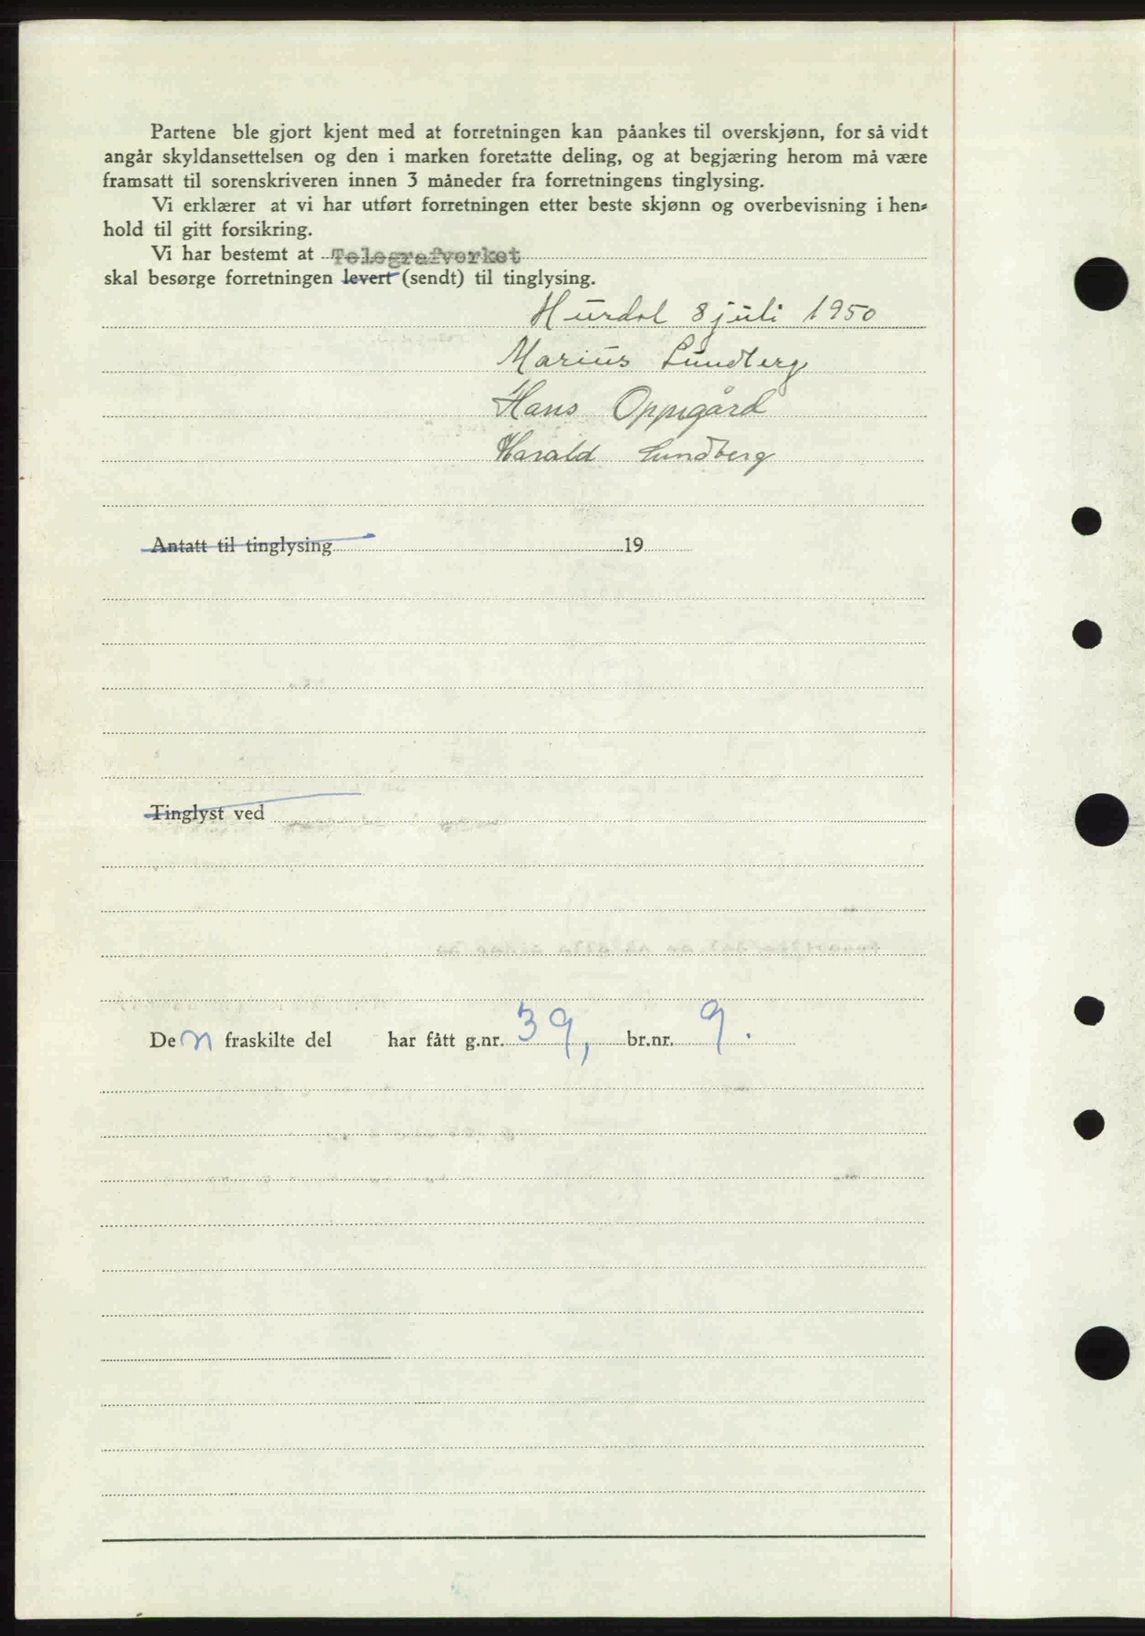 Partene ble gjort kjent med at forretningen kan påankes til overskjønn, for så vidt
angår skyldansettelsen og den i marken foretatte deling, og at begjæring herom må være
framsatt til sorenskriveren innen 3 måneder fra forretningens tinglysing.
Vi erklærer at vi har utført forretningen etter beste skjønn og overbevisning i hen-
hold til gitt forsikring.
Vi har bestemt at Telegrafverket
skal besørge forretningen levert (sendt) til tinglysing.
Hurdal 8 juli 1950
Marius Lundberg
Hans Oppegård
Harald Lundberg
Antatt til tinglysing 19
Tinglyst ved
Den fraskilte del har fått g.nr. 39, br.nr. 9.